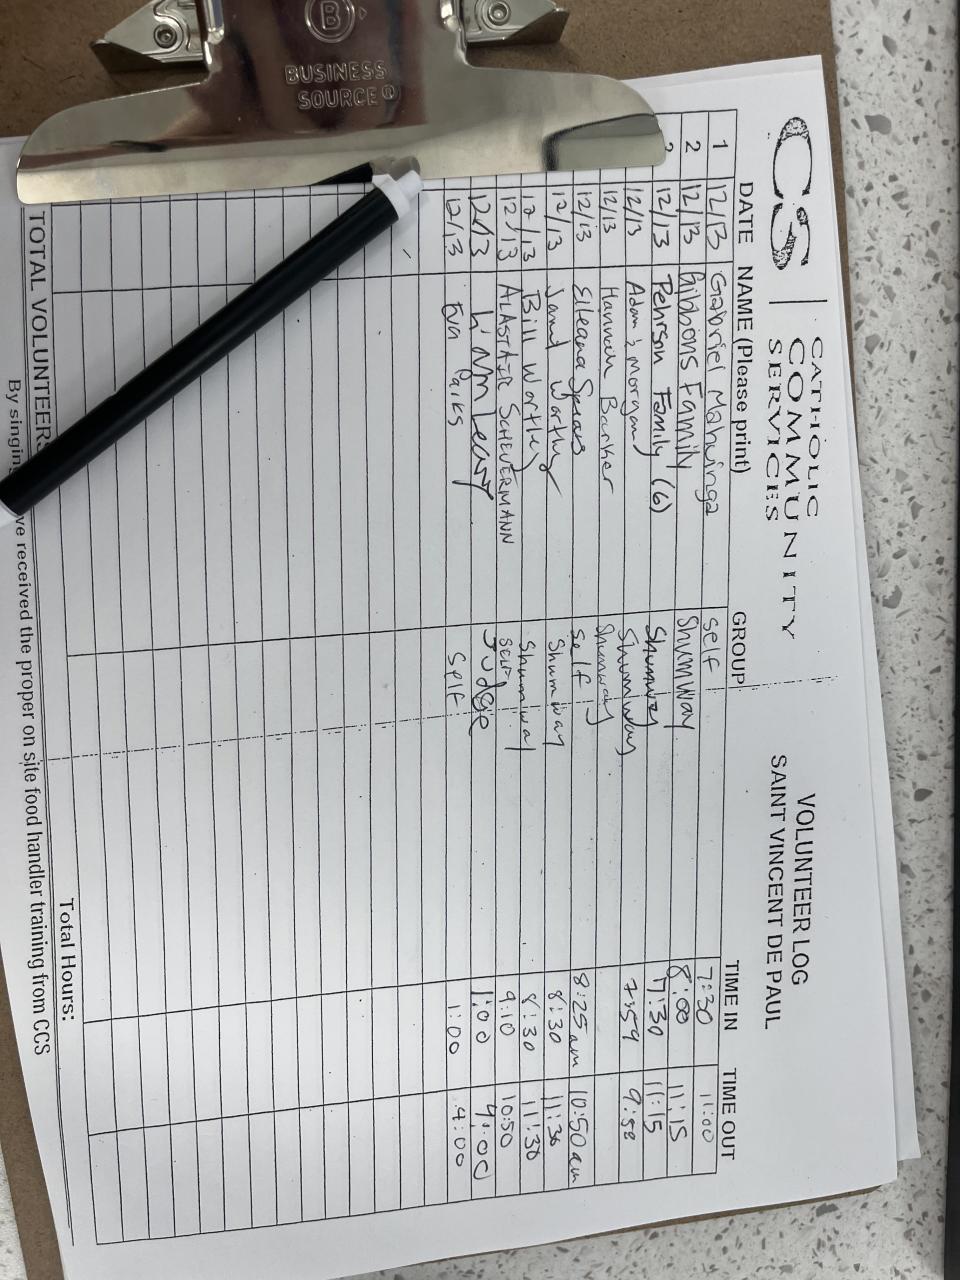 BUSINESS
SOURCE®
B
CS
CATHOLIC
COMMUNITY
SERVICES
VOLUNTEER LOG
SAINT VINCENT DE PAUL
DATE NAME (Please print) GROUP TIME IN TIME OUT
1 12/13 Gabriel self 7:30 11:00
2 12/13 Gibbons Family Shumway 8:00 11:15
12/13 Pehrson Family (6) Shumway 7:30 11:15
12/13 Adam & Morgan Shumway 7:59 9:58
12/13 Hannah Barker Shumway
12/13 Elleana Spears self 8:25am 10:50am
12/13 Janet Worthy Shumway 8:30 11:30
12/13 Bill Worthy Shumway 8:30 11:30
12/13 ALASTAIR SCHEUERMANN SELF 9:10 10:50
12/13 Judge 1:00 4:00
12/13 Eva Parks Self 1:00 4:00
TOTAL VOLUNTEERS Total Hours:
By singin ve received the proper on site food handler training from CCS